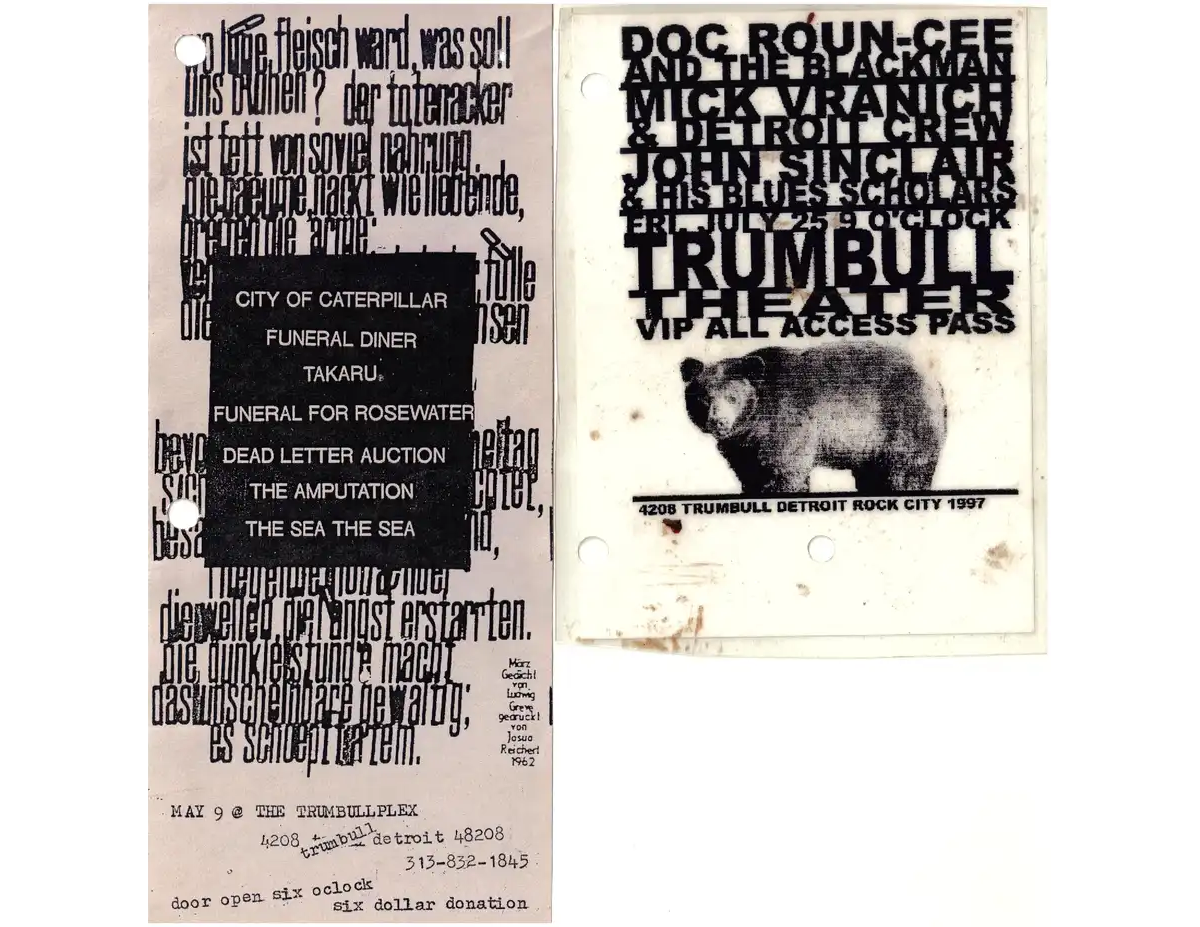 wo lüge fleisch ward, was soll
uns blühen? der totenacker
ist fett von soviel nahrung.
die baeume, nackt wie liebende,
arme:
fülle
CITY OF CATERPILLAR
FUNERAL DINER
TAKARU.
FUNERAL FOR ROSEWATER
DEAD LETTER AUCTION
THE AMPUTATION
THE SEA THE SEA
dieweilen die angst erstarrten.
die dunkle stunde macht
das unscheinbare gewaltig;
es schoepft atem.
März
Gedicht
von
Ludwig
Greve
gedruckt
von
Josua
Reichert
1962
MAY 9 @ THE TRUMBULLPLEX
4208 trumbull detroit 48208
313-832-1845
door open six oclock
six dollar donation
DOC ROUN-CEE
AND THE BLACKMAN
MICK VRANICH
& DETROIT CREW
JOHN SINCLAIR
& HIS BLUES SCHOLARS
FRI. JULY 25 9 O'CLOCK
TRUMBULL
THEATER
VIP ALL ACCESS PASS
4208 TRUMBULL DETROIT ROCK CITY 1997